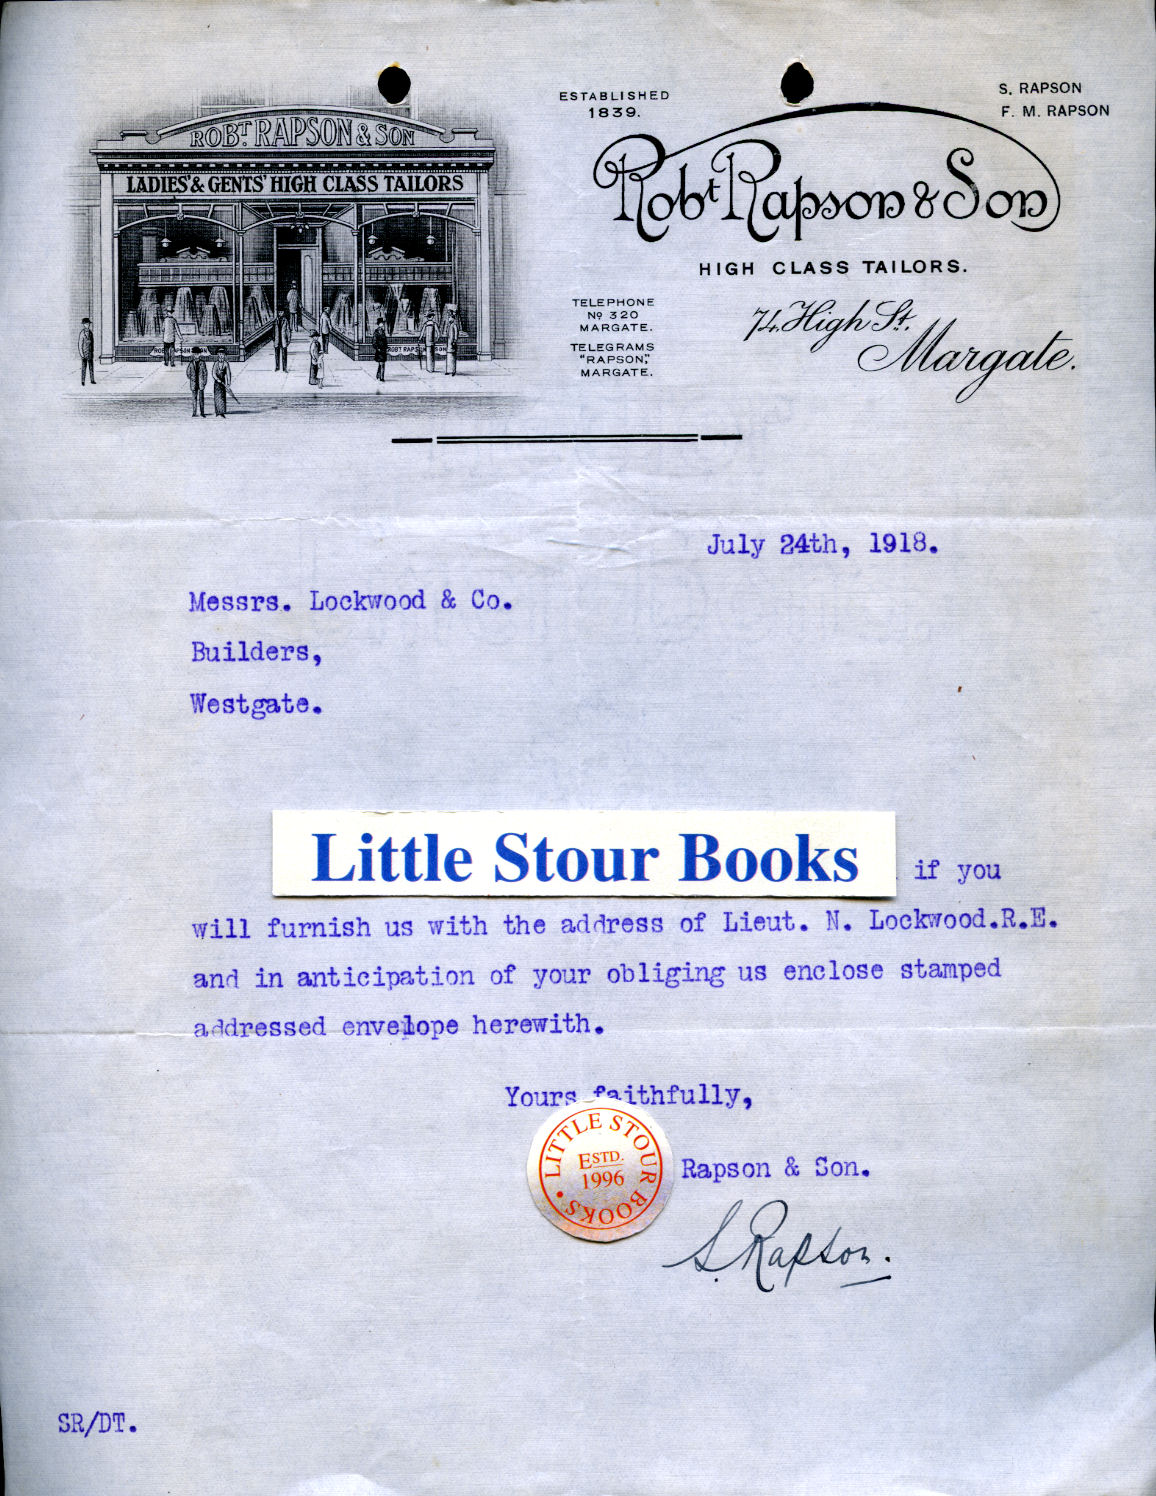 ROBT. RAPSON & SON
LADIES' & GENTS' HIGH CLASS TAILORS
ESTABLISHED
1839.
S. RAPSON
F. M. RAPSON
Robt Rapson & Son
HIGH CLASS TAILORS.
TELEPHONE
No 320
MARGATE.
TELEGRAMS
"RAPSON,"
MARGATE.
74 High St.
Margate.
July 24th, 1918.
Messrs. Lockwood & Co.
Builders,
Westgate.
Little Stour Books
if you
will furnish us with the address of Lieut. N. Lockwood.R.E.
and in anticipation of your obliging us enclose stamped
addressed envelope herewith.
Yours faithfully,
LITTLE STOUR BOOKS
ESTD.
1996
Rapson & Son.
S. Rapson.
SR/DT.